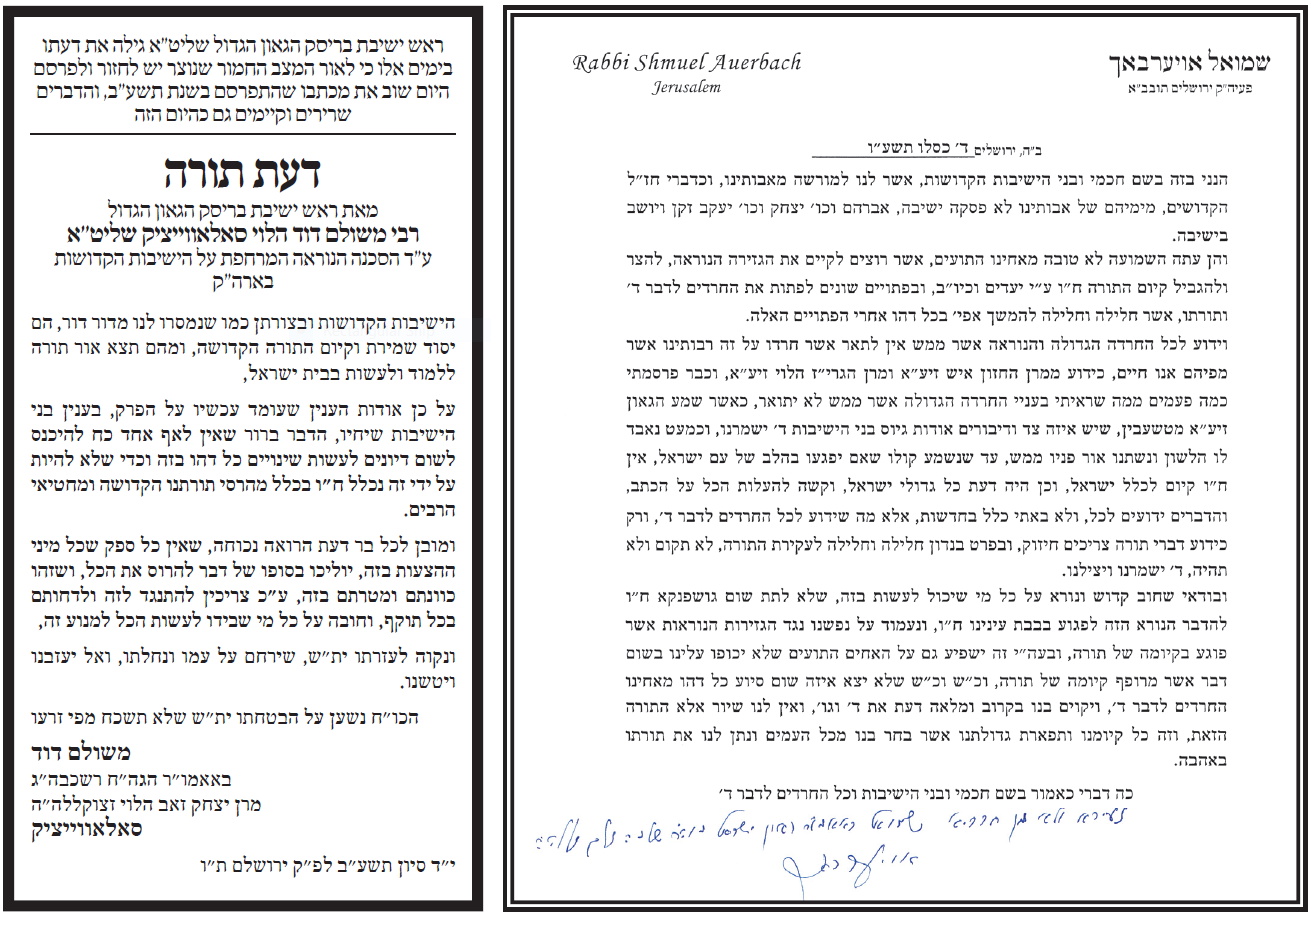 ראש ישיבת בריסק הגאון הגדול שליט"א גילה את דעתו
בימים אלו כי לאור המצב החמור שנוצר יש לחזור ולפרסם
היום שוב את מכתבו שהתפרסם בשנת תשע"ב, והדברים
שרירים וקיימים גם כהיום הזה
דעת תורה
מאת ראש ישיבת בריסק הגאון הגדול
רבי משולם דוד הלוי סאלאווייציק שליט"א
ע"ד הסכנה הנוראה המרחפת על הישיבות הקדושות
בארה"ק
הישיבות הקדושות ובצורתן כמו שנמסרו לנו מדור דור, הם
יסוד שמירת וקיום התורה הקדושה, ומהם תצא אור תורה
ללמוד ולעשות בבית ישראל,
על כן אודות הענין שעומד עכשיו על הפרק, בענין בני
הישיבות שיחיו, הדבר ברור שאין לאף אחד כח להיכנס
לשום דיונים לעשות שינויים כל דהו בזה וכדי שלא להיות
על ידי זה נכלל ח"ו בכלל מהרסי תורתנו הקדושה ומחטיאי
הרבים.
ומובן לכל בר דעת הרואה נכוחה, שאין כל ספק שכל מיני
ההצעות בזה, יוליכו בסופו של דבר להרוס את הכל, ושזהו
כוונתם ומטרתם בזה, ע"כ צריכין להתנגד לזה ולדחותם
בכל תוקף, וחובה על כל מי שבידו לעשות הכל למנוע זה,
ונקוה לעזרתו ית"ש, שירחם על עמו ונחלתו, ואל יעזבנו
ויטשנו.
הכו"ח נשען על הבטחתו ית"ש שלא תשכח מפי זרעו
משולם דוד
באאמו"ר הגה"ח רשכבה"ג
מרן יצחק זאב הלוי זצוקללה"ה
סאלאווייציק
י"ד סיון תשע"ב לפ"ק ירושלם ת"ו
Rabbi Shmuel Auerbach
Jerusalem
שמואל אויערבאך
פעיה"ק ירושלים תובב"א
ב"ה, ירושלים ד' כסלו תשע"ו
הנני בזה בשם חכמי ובני הישיבות הקדושות, אשר לנו למורשה מאבותינו, וכדברי חז"ל
הקדושים, מימיהם של אבותינו לא פסקה ישיבה, אברהם וכו' יצחק וכו' יעקב זקן ויושב
בישיבה.
והן עתה השמועה לא טובה מאחינו התועים, אשר רוצים לקיים את הגזירה הנוראה, להצר
ולהגביל קיום התורה ח"ו ע"י יעדים וכיו"ב, ובפתויים שונים לפתות את החרדים לדבר ד'
ותורתו, אשר חלילה וחלילה להמשך אפי' בכל דהו אחרי הפתויים האלה.
וידוע לכל החרדה הגדולה והנוראה אשר ממש אין לתאר אשר חרדו על זה רבותינו אשר
מפיהם אנו חיים, כידוע ממרן החזון איש זיע"א ומרן הגרי"ז הלוי זיע"א, וכבר פרסמתי
כמה פעמים ממה שראיתי בעניי החרדה הגדולה אשר ממש לא יתואר, כאשר שמע הגאון
זיע"א מטשעבין, שיש איזה צד ודיבורים אודות גיוס בני הישיבות ד' ישמרנו, וכמעט נאבד
לו הלשון ונשתנו אור פניו ממש, עד שנשמע קולו שאם יפגעו בהלב של עם ישראל, אין
ח"ו קיום לכלל ישראל, וכן היה דעת כל גדולי ישראל, וקשה להעלות הכל על הכתב,
והדברים ידועים לכל, ולא באתי כלל בחדשות, אלא מה שידוע לכל החרדים לדבר ד', ורק
כידוע דברי תורה צריכים חיזוק, ובפרט בנדון חלילה וחלילה לעקירת התורה, לא תקום ולא
תהיה, ד' ישמרנו ויצילנו.
ובודאי שחוב קדוש ונורא על כל מי שיכול לעשות בזה, שלא לתת שום גושפנקא ח"ו
להדבר הנורא הזה לפגוע בבבת עינינו ח"ו, ונעמוד על נפשנו נגד הגזירות הנוראות אשר
פוגע בקיומה של תורה, ובעה"י זה ישפיע גם על האחים התועים שלא יכופו עלינו בשום
דבר אשר מרופף קיומה של תורה, וכ"ש וכ"ש שלא יצא איזה שום סיוע כל דהו מאחינו
החרדים לדבר ד', ויקוים בנו בקרוב ומלאה דעת את ד' וגו', ואין לנו שיור אלא התורה
הזאת, וזה כל קיומנו ותפארת גדולתנו אשר בחר בנו מכל העמים ונתן לנו את תורתו
באהבה.
כה דברי כאמור בשם חכמי ובני הישיבות וכל החרדים לדבר ד'
שמואל
אויערבאך